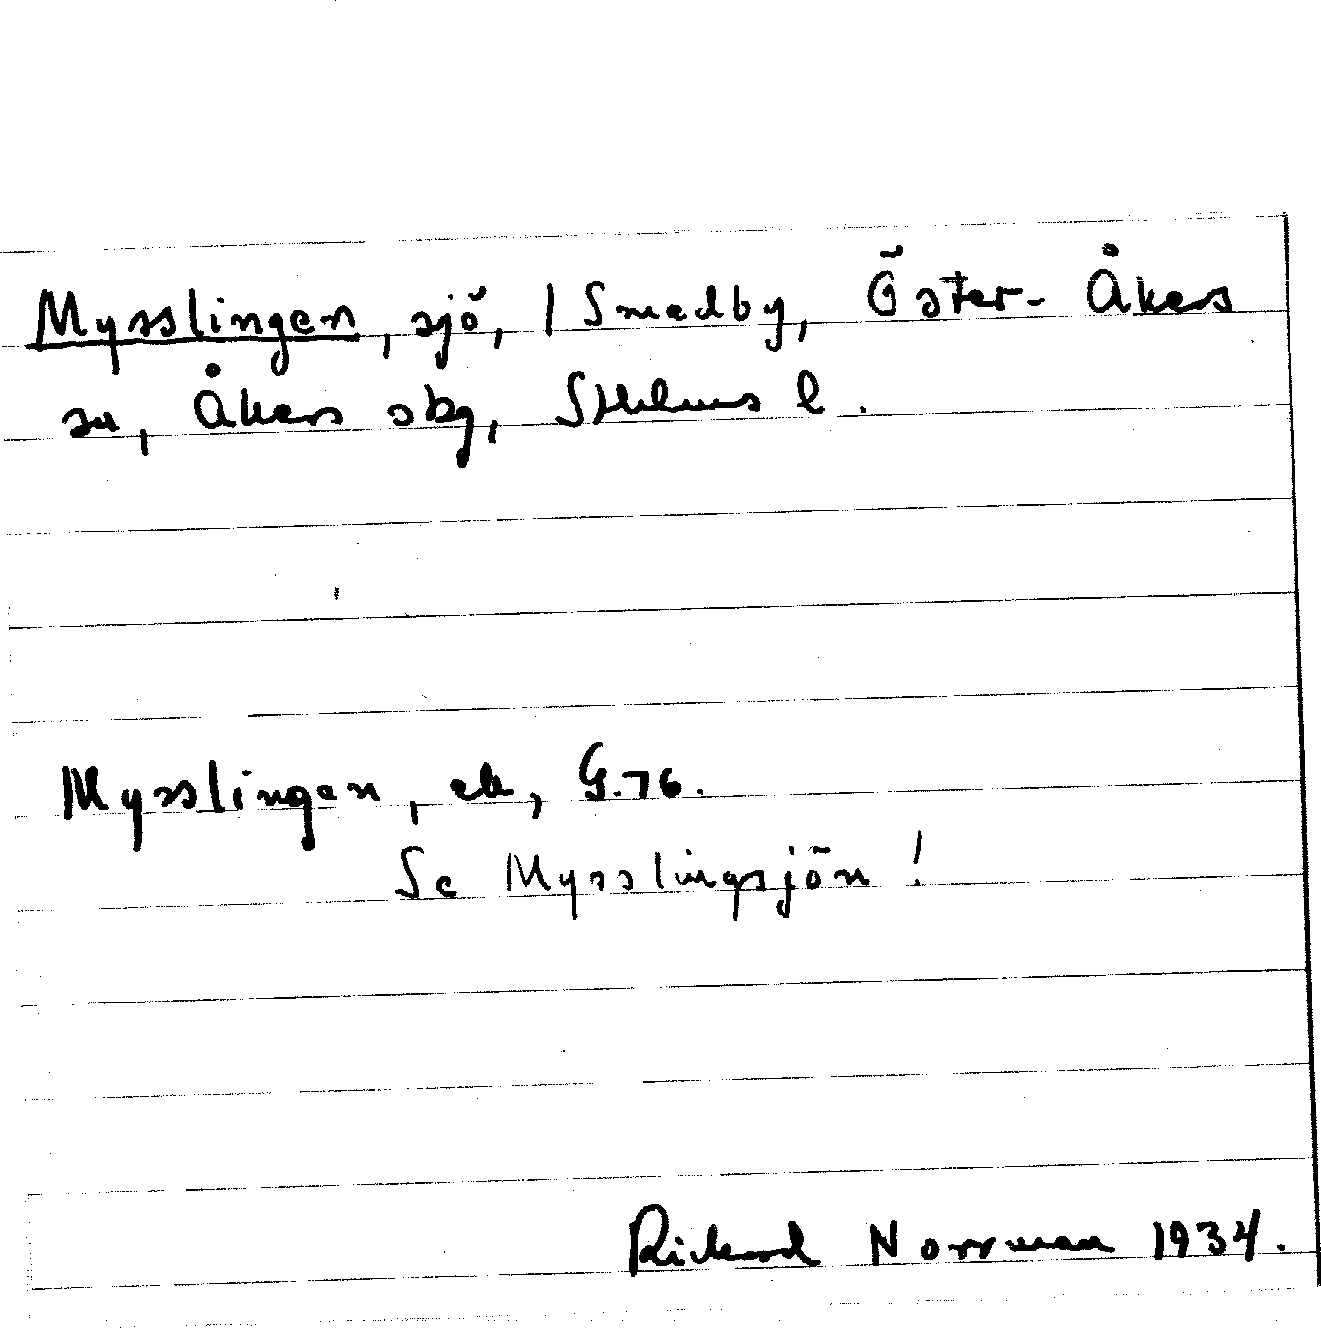 Mysslingen, sjö, / Smedby, Öster-Åkers
sn, Åkers skg, Sthlms l.
Mysslingen, ek, G.76.
Se Mysslingsjön!
Rickard Norrman 1934.